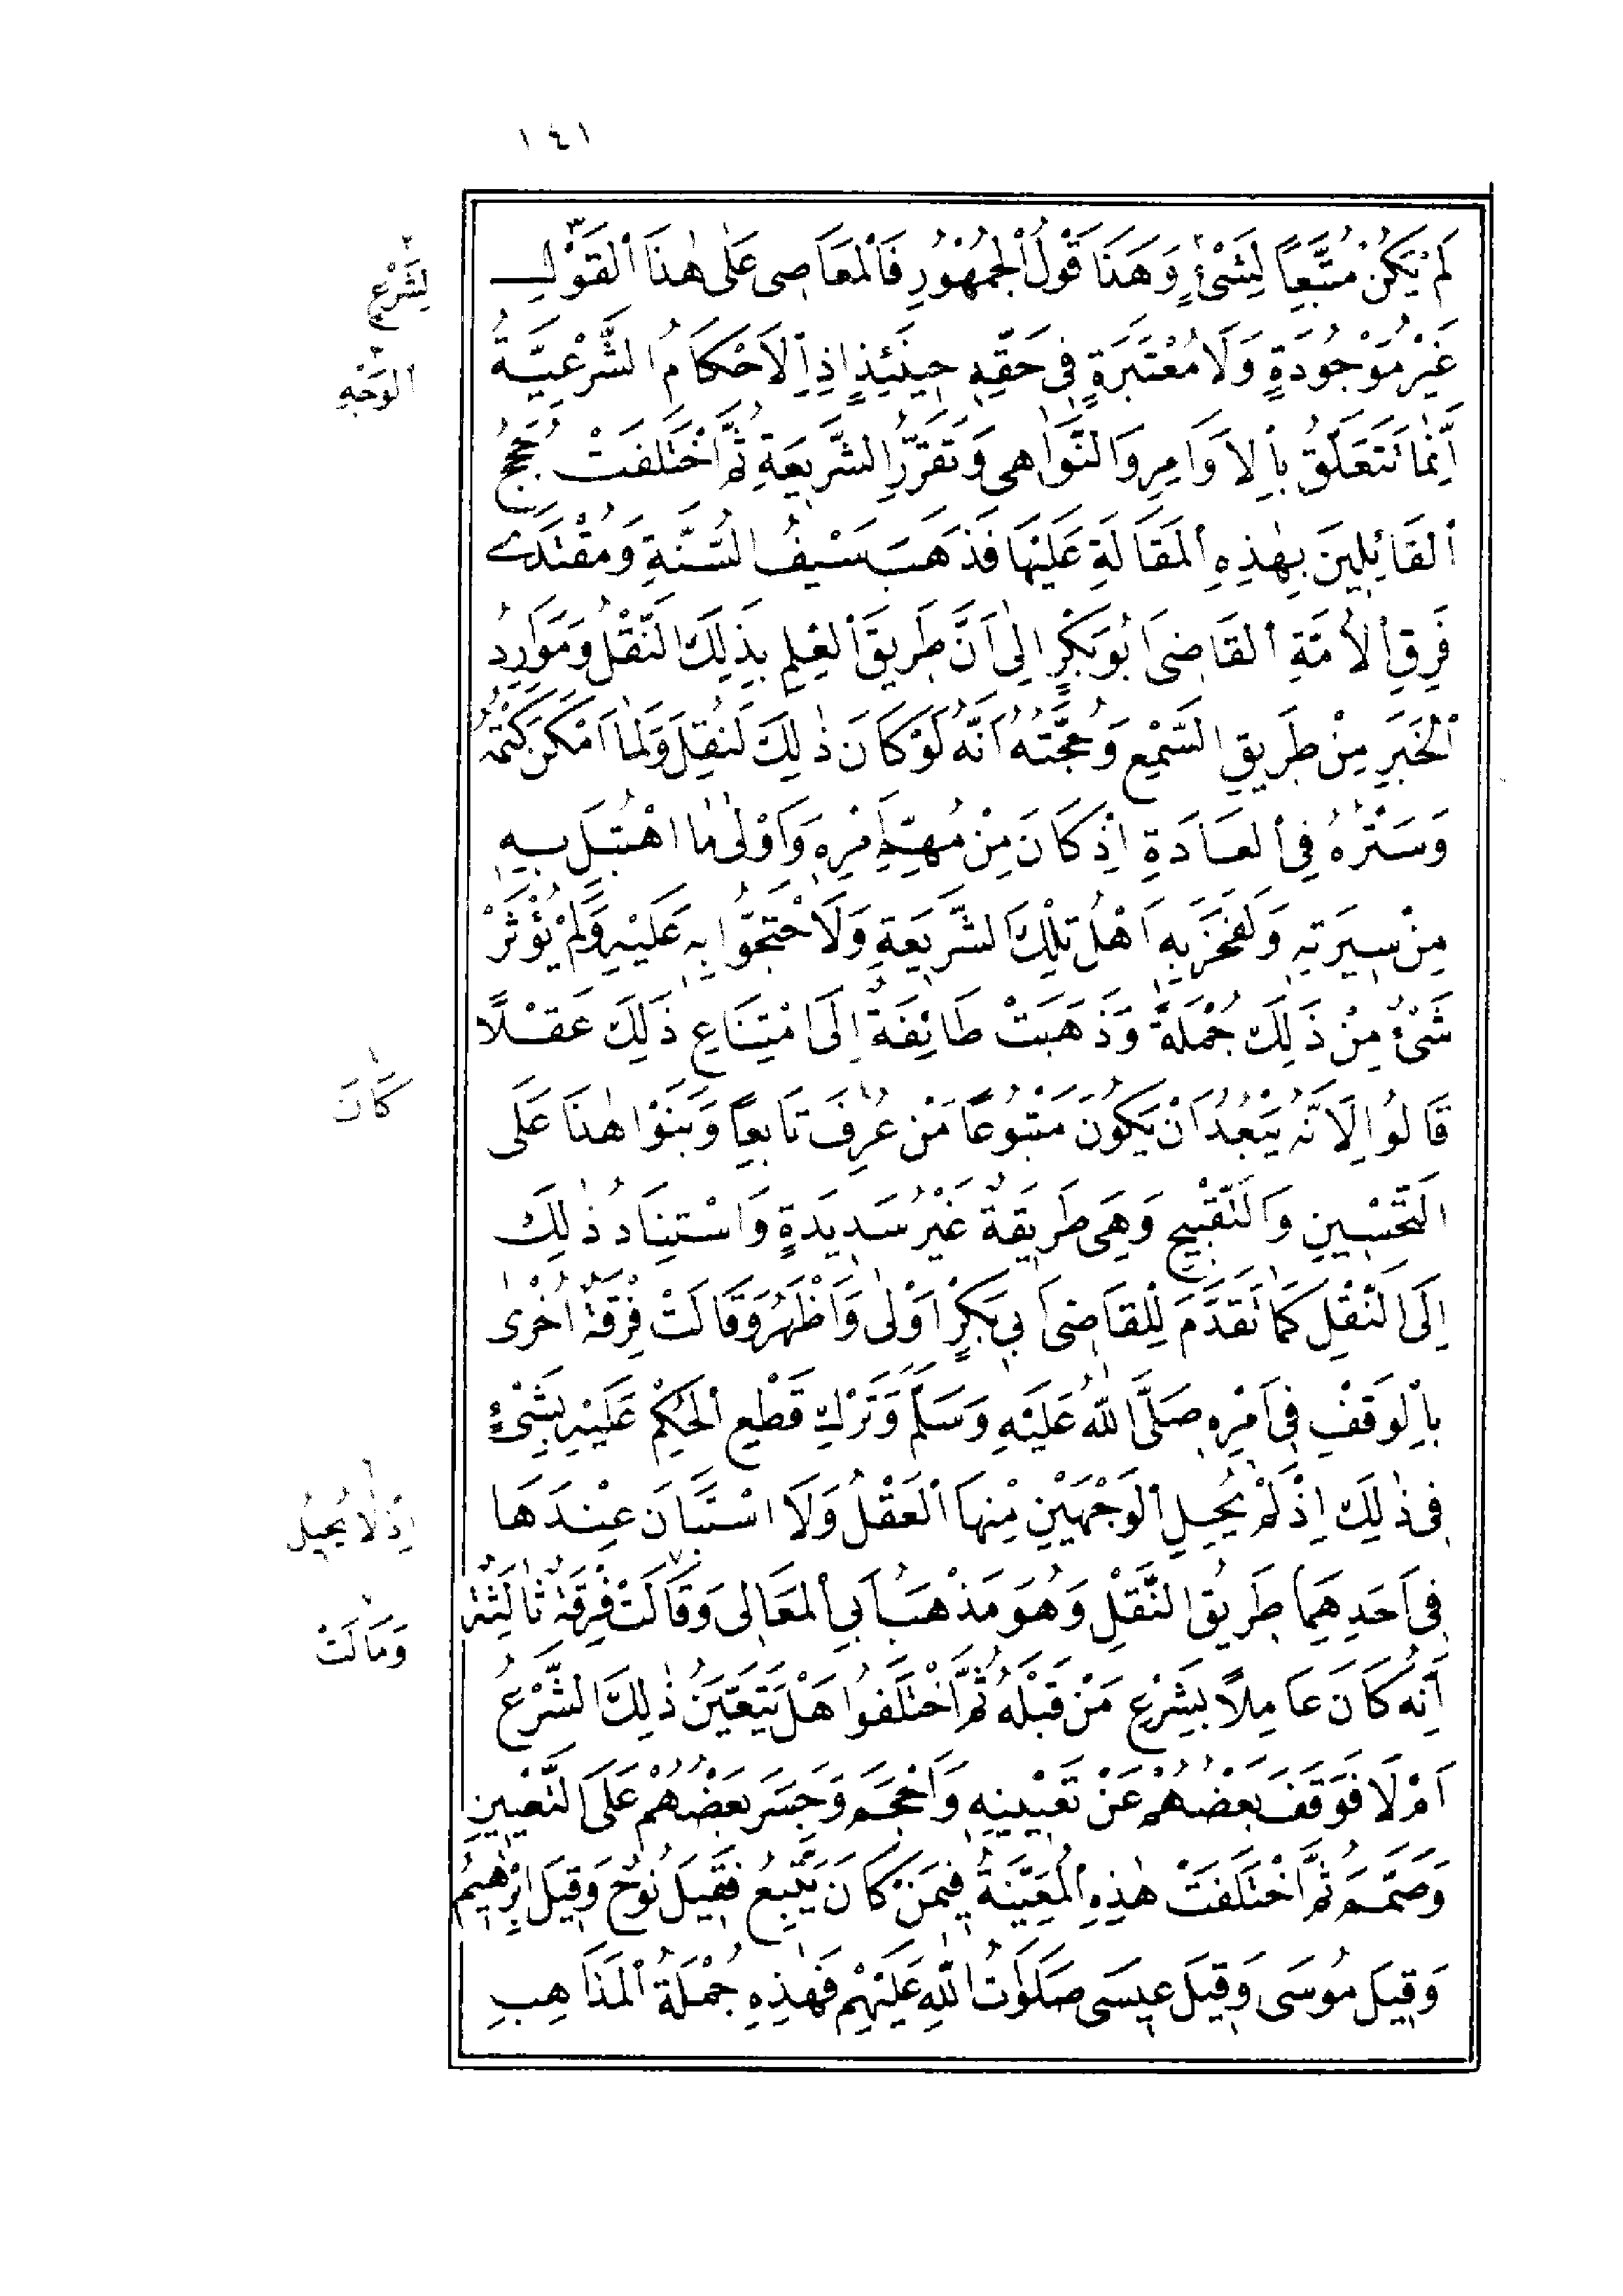 ١٤١
لَمْ يَكُنْ مُتَّبِعاً لِشَىْءٍ وَهَذَا قَوْلُ ٱلْجُمْهُورِ فَالْمَعَاصِى عَلٰى هٰذَا ٱلْقَوْلِ
غَيْرُ مَوْجُودَةٍ وَلَا مُعْتَبَرَةٍ فِى حَقِّهِ حِينَئِذٍ إِذِ ٱلْاَحْكَامُ الشَّرْعِيَّةُ
إِنَّمَا تَتَعَلَّقُ بِٱلْاَوَامِرِ وَالنَّوَاهِى وَتَقَرُّرِ الشَّرِيعَةِ ثُمَّ اخْتَلَفَتْ حُجَجُ
ٱلْقَائِلِينَ بِهٰذِهِ ٱلْمَقَالَةِ عَلَيْهَا فَذَهَبَ سَيْفُ السُّنَّةِ وَمُقْتَدٰى
فِرَقِ ٱلْاُمَّةِ ٱلْقَاضِى اَبُو بَكْرٍ اِلٰى اَنَّ طَرِيقَ ٱلْعِلْمِ بِذَلِكَ النَّقْلُ وَمَوَارِدُ
ٱلْخَبَرِ مِنْ طَرِيقِ السَّمْعِ وَحُجَّتُهُ اَنَّهُ لَوْ كَانَ ذٰلِكَ لَنُقِلَ وَلَمَا اَمْكَنَ كَتْمُهُ
وَسَتْرُهُ فِى ٱلْعَادَةِ اِذْ كَانَ مِنْ مُهِمِّ اَمْرِهِ وَاَوْلٰى مَا اهْتُبِلَ بِهِ
مِنْ سِيرَتِهِ وَلَفَخَرَ بِهِ اَهْلُ تِلْكَ الشَّرِيعَةِ وَلَاحْتَجُّوا بِهِ عَلَيْهِ وَلَمْ يُؤْثَرْ
شَىْءٌ مِنْ ذَلِكَ جُمْلَةً وَذَهَبَتْ طَائِفَةٌ اِلَى امْتِنَاعِ ذَلِكَ عَقْلًا
قَالُوا لِاَنَّهُ يَبْعُدُ اَنْ يَكُونَ مَتْبُوعاً مَنْ عُرِفَ تَابِعاً وَبَنَوْا هٰذَا عَلَى
التَّحْسِينِ وَالتَّقْبِيحِ وَهِىَ طَرِيقَةٌ غَيْرُ سَدِيدَةٍ وَاسْتِنَادُ ذٰلِكَ
اِلَى النَّقْلِ كَمَا تَقَدَّمَ لِلْقَاضِى اَبِى بَكْرٍ اَوْلٰى وَاَظْهَرُ وَقَالَتْ فِرْقَةٌ اُخْرٰى
بِٱلْوَقْفِ فِى اَمْرِهِ صَلَّى اللّٰهُ عَلَيْهِ وَسَلَّمَ وَتَرْكِ قَطْعِ ٱلْحُكْمِ عَلَيْهِ بِشَىْءٍ
فِى ذٰلِكَ اِذْ لَمْ يُحِلِ ٱلْوَجْهَيْنِ مِنْهَا ٱلْعَقْلُ وَلَا اسْتَبَانَ عِنْدَهَا
فِى اَحَدِهِمَا طَرِيقُ النَّقْلِ وَهُوَ مَذْهَبُ اَبِى ٱلْمَعَالِى وَقَالَتْ فِرْقَةٌ ثَالِثَةٌ
اِنَّهُ كَانَ عَامِلًا بِشَرْعِ مَنْ قَبْلَهُ ثُمَّ اخْتَلَفُوا هَلْ يَتَعَيَّنُ ذٰلِكَ الشَّرْعُ
اَمْ لَا فَوَقَفَ بَعْضُهُمْ عَنْ تَعْيِينِهِ وَاَحْجَمَ وَجَسَرَ بَعْضُهُمْ عَلَى التَّعْيِينِ
وَصَمَّمَ ثُمَّ اخْتَلَفَتْ هٰذِهِ ٱلْمُعَيِّنَةُ فِيمَنْ كَانَ يَتَّبِعُ فَقِيلَ نُوحٌ وَقِيلَ اِبْرٰهِيمُ
وَقِيلَ مُوسَى وَقِيلَ عِيسَى صَلَوَاتُ اللّٰهِ عَلَيْهِمْ فَهٰذِهِ جُمْلَةُ ٱلْمَذَاهِبِ
٢
لِشَرْعٍ
٣
ٱلْوَجْهِ
١
كَانَ
٦
اِذْ لَا يُحِيلُ
٨
وَمَالَتْ